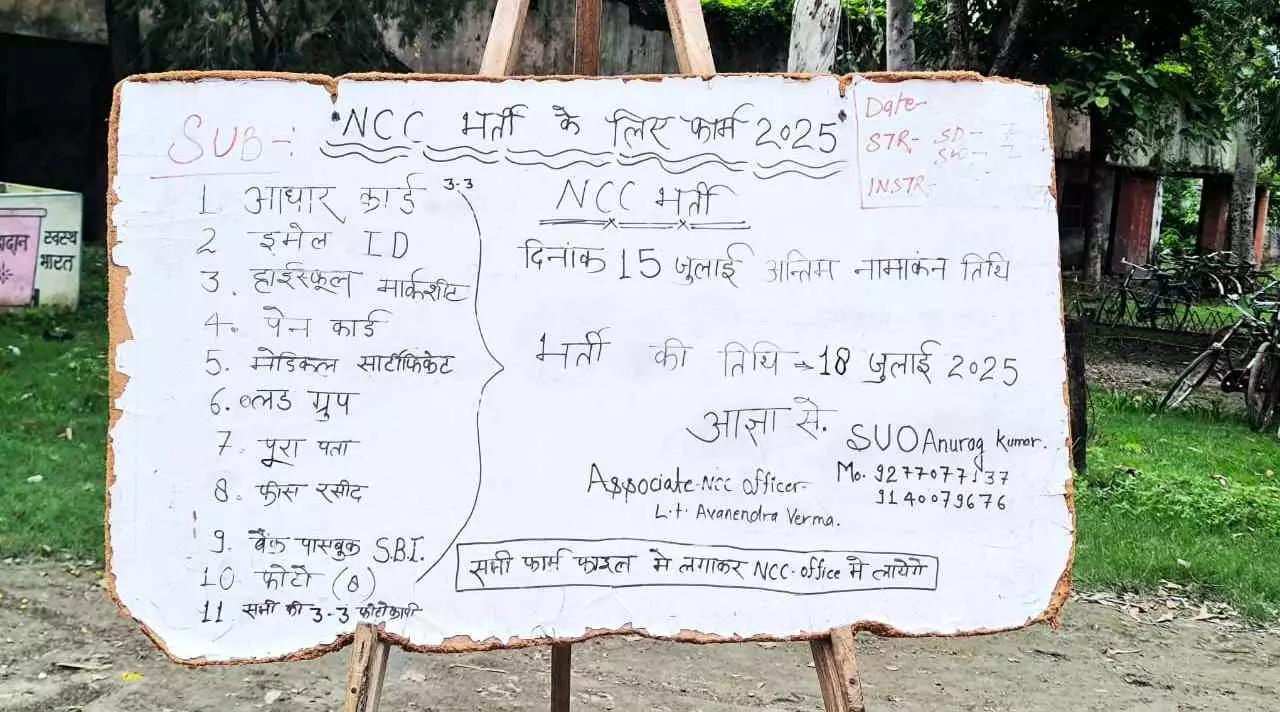 SUB-: NCC भर्ती के लिए फार्म 2025
Date-
STR- SD-
SW-
INSTR-
1 आधार कार्ड 3-3
2 इमेल ID
3. हाईस्कूल मार्कशीट
4. पेन कार्ड
5. मेडिकल सार्टीफिकेट
6. ब्लड ग्रुप
7. पूरा पता
8. फीस रसीद
9. बैंक पासबुक S.B.I.
10 फोटो (8)
11 सभी की 3-3 फोटोकापी
NCC भर्ती
दिनांक 15 जुलाई अन्तिम नामांकन तिथि
भर्ती की तिथि → 18 जुलाई 2025
आज्ञा से.
SUO Anurag Kumar.
Mo.
9140079676
Associate-Ncc officer-
L.t. Avanendra Verma.
सभी फार्म फाइल मे लगाकर NCC-office मे लायेगे
दान
स्वस्थ
भारत